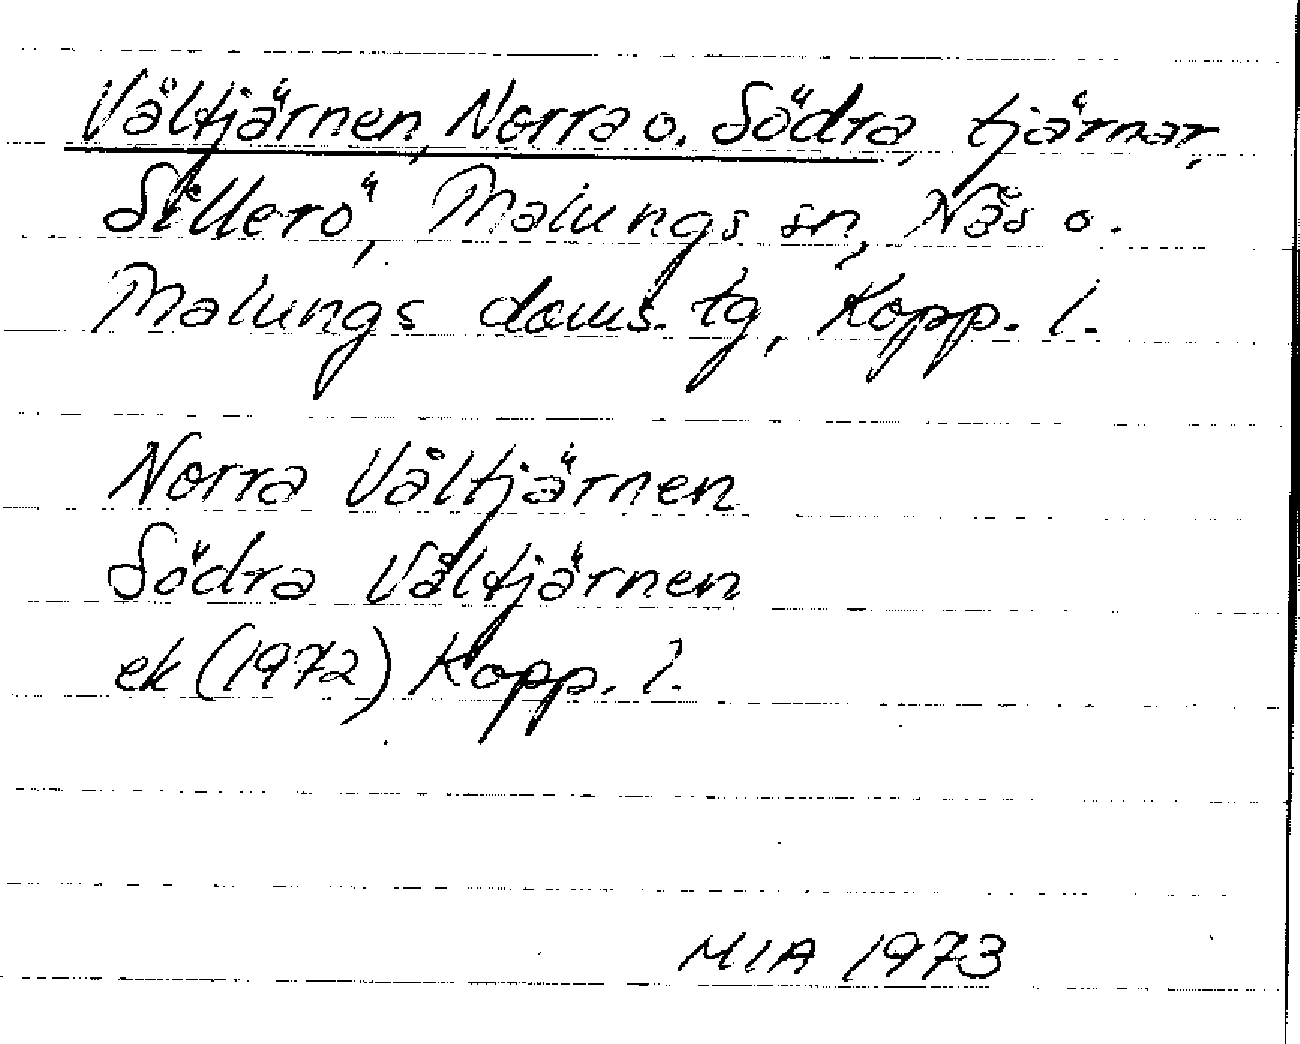 Våltjärnen, Norra o. Södra, tjärnar,
Sillerö, Malungs sn, Näs o.
Malungs doms. tg, Kopp. l.
Norra Våltjärnen
Södra Våltjärnen
ek (1972) Kopp. l.
MIA 1973